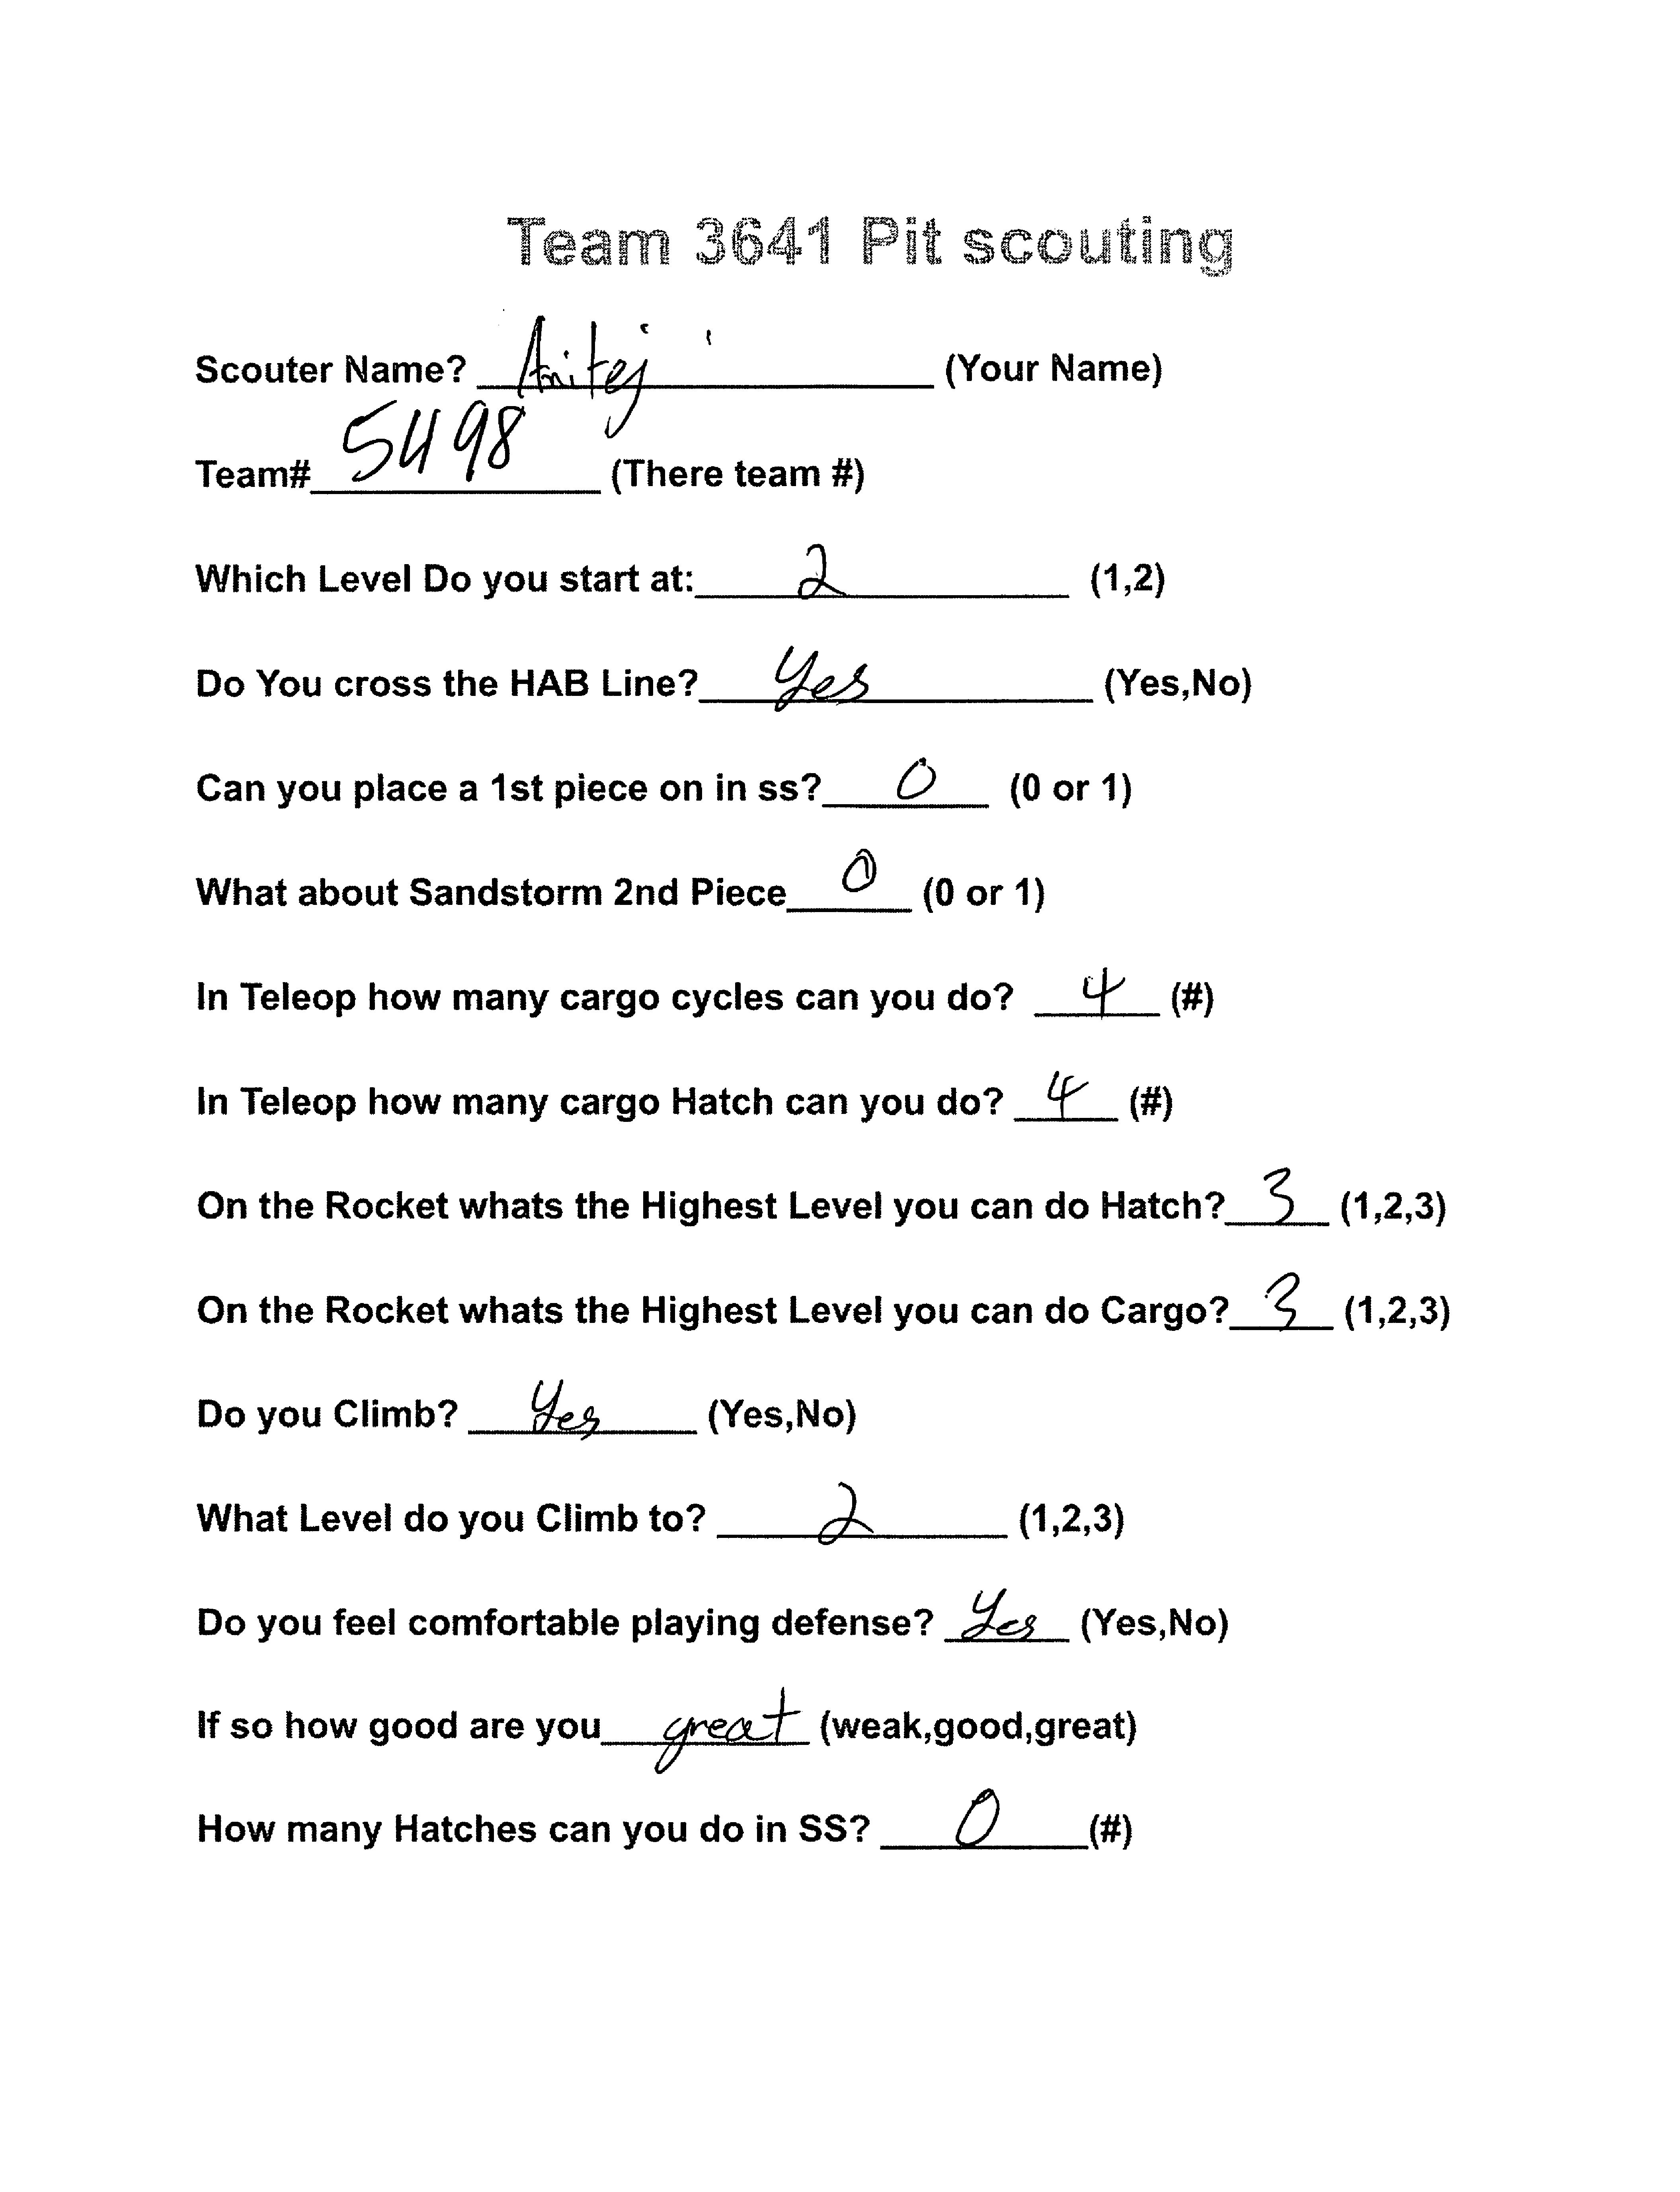 Team 3641 Pit scouting
Scouter Name? Anitej (Your Name)
Team# 5498 (There team #)
Which Level Do you start at: 2 (1,2)
Do You cross the HAB Line? Yes (Yes,No)
Can you place a 1st piece on in ss? 0 (0 or 1)
What about Sandstorm 2nd Piece 0 (0 or 1)
In Teleop how many cargo cycles can you do? 4 (#)
In Teleop how many cargo Hatch can you do? 4 (#)
On the Rocket whats the Highest Level you can do Hatch? 3 (1,2,3)
On the Rocket whats the Highest Level you can do Cargo? 3 (1,2,3)
Do you Climb? Yes (Yes,No)
What Level do you Climb to? 2 (1,2,3)
Do you feel comfortable playing defense? Yes (Yes,No)
If so how good are you great (weak,good,great)
How many Hatches can you do in SS? 0 (#)